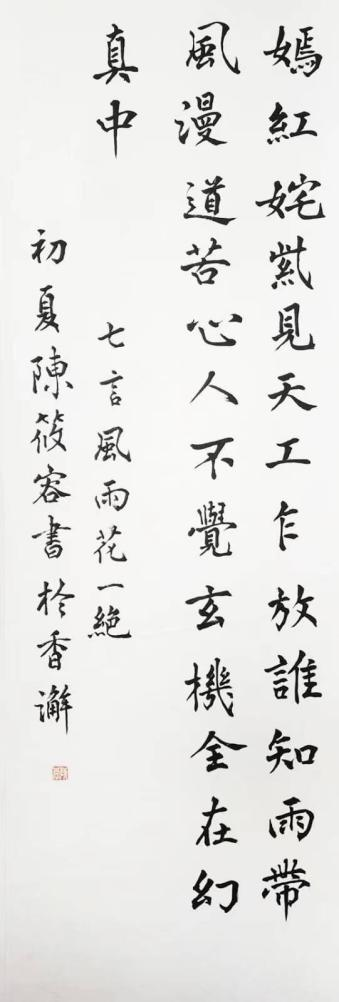 嫣紅姹紫見天工乍放誰知雨帶
風漫道苦心人不覺玄機全在幻
真中
七言風雨花一絕
初夏陳筱容書於香澥